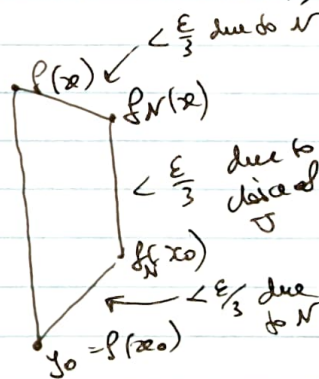 < ε/3 due to N
f(x)
f_N(x)
< ε/3 due to
choice of
U
f_N(x_0)
< ε/3 due
to N
y_0 = f(x_0)